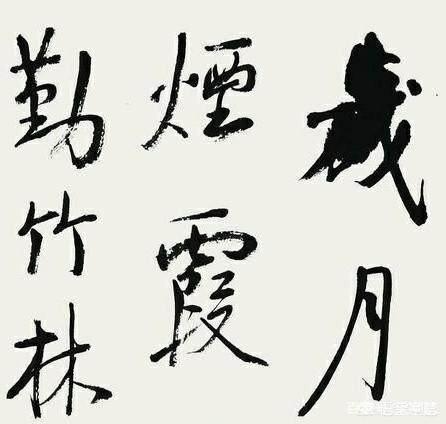 歲月
煙霞
勤竹林